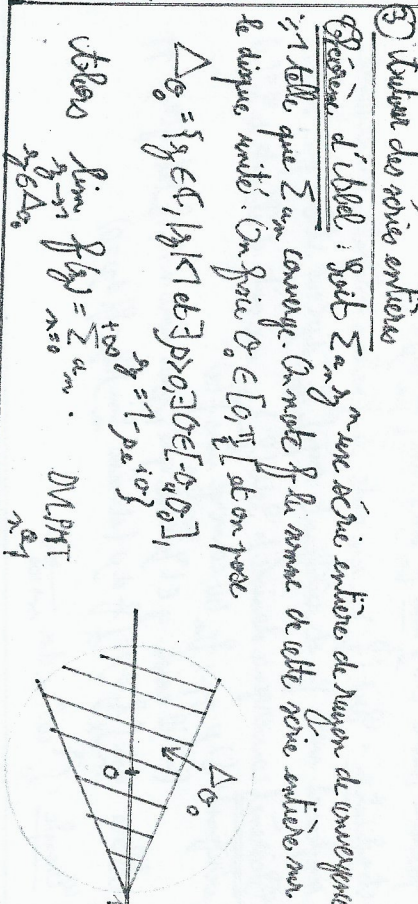 ③ Autour des séries entières
Théorème d'Abel : Soit Σ a_n z^n une série entière de rayon de convergence
≥ 1 telle que Σ a_n converge. On note f la somme de cette série entière sur
le disque unité. On fixe θ₀ ∈ [0, π/2[ et on pose
Δ_θ₀ = {z ∈ ℂ, |z|<1 et ∃ρ>0, ∃θ∈[-θ₀,θ₀],
z = 1-ρe^{iθ}}
Alors lim_{z→1, z∈Δ_θ₀} f(z) = Σ_{n=0}^{+∞} a_n.
Δ_θ₀
0
1